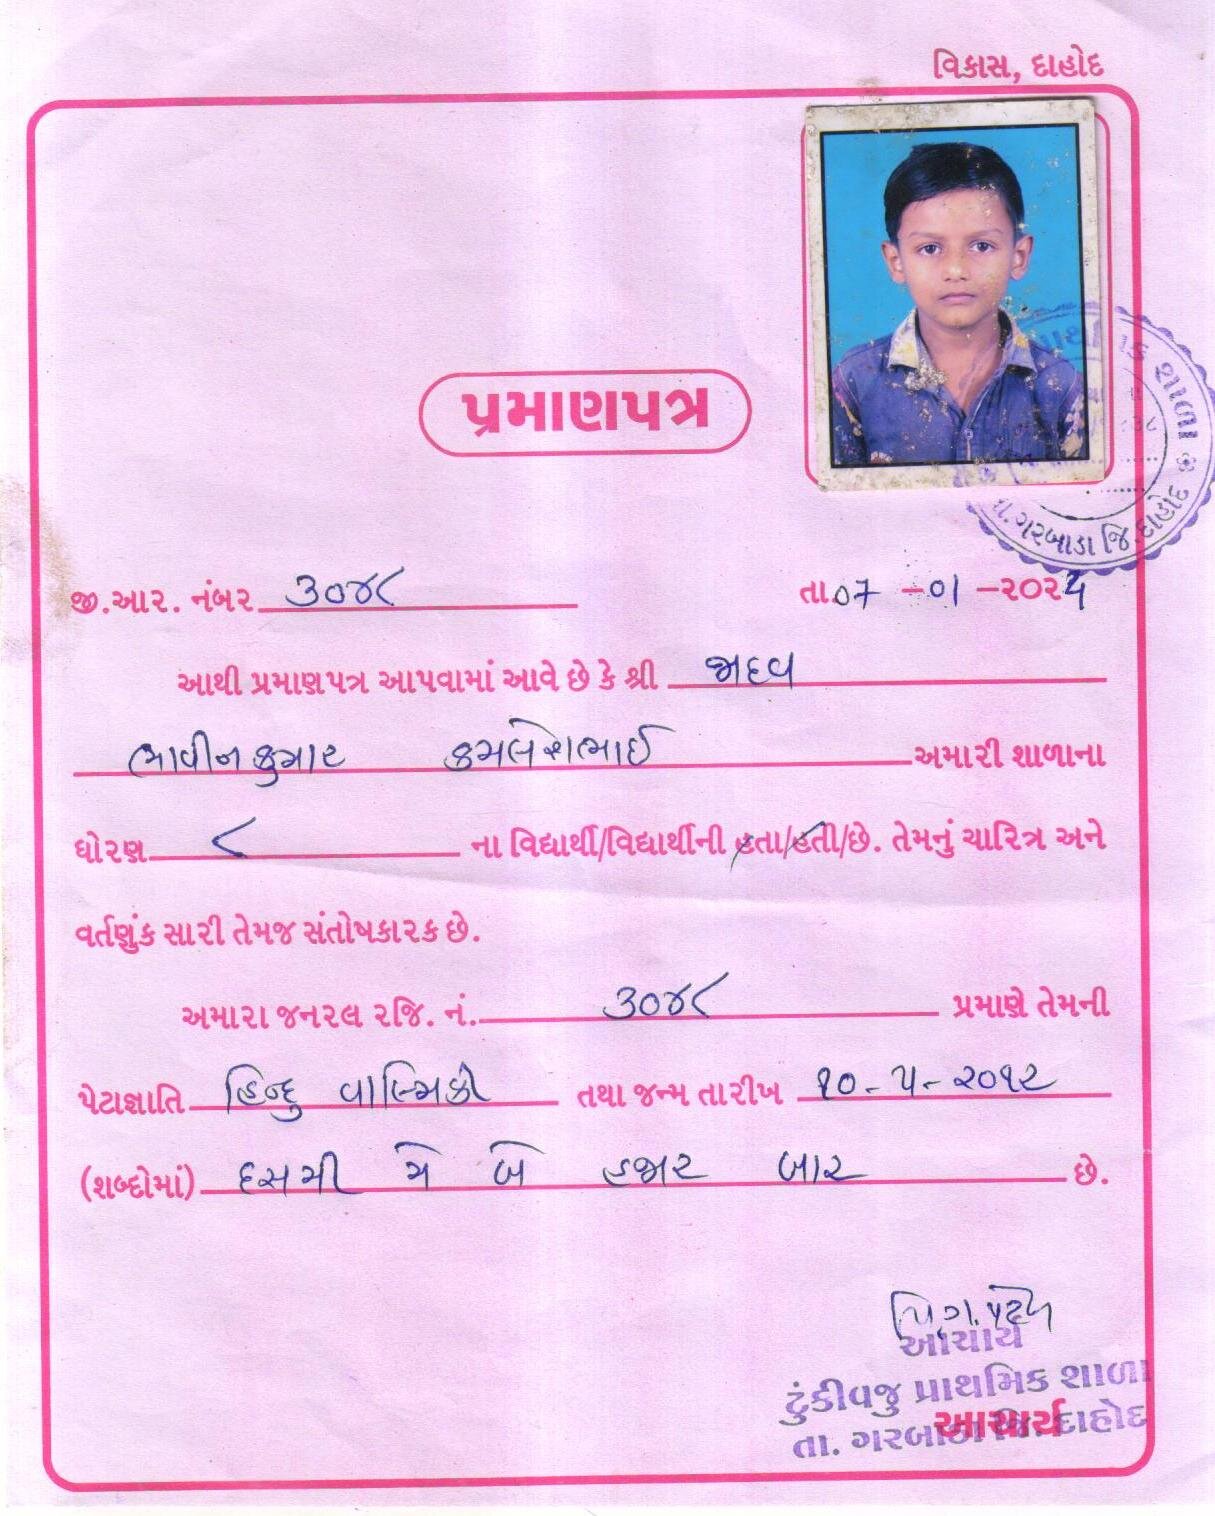 વિકાસ, દાહોદ
પ્રમાણપત્ર
શાળા
તા. ગરબાડા જિ. દાહોદ
જી.આર. નંબર ૩૦૪૮
તા.૦7 -૦1 -૨૦૨૫
આથી પ્રમાણપત્ર આપવામાં આવે છે કે શ્રી જાદવ
ભાવીનકુમાર કમલેશભાઈ અમારી શાળાના
ધોરણ ૮ ના વિદ્યાર્થી/વિદ્યાર્થીની હતા/હતી/છે. તેમનું ચારિત્ર અને
વર્તણુંક સારી તેમજ સંતોષકારક છે.
અમારા જનરલ રજિ. નં. ૩૦૪૮ પ્રમાણે તેમની
પેટાજ્ઞાતિ હિન્દુ વાલ્મિકી તથા જન્મ તારીખ ૧૦-૫-૨૦૧૨
(શબ્દોમાં) દસમી મે બે હજાર બાર છે.
આચાર્ય
ટુંકીવજુ પ્રાથમિક શાળા
આચાર્ય
તા. ગરબાડા જિ. દાહોદ